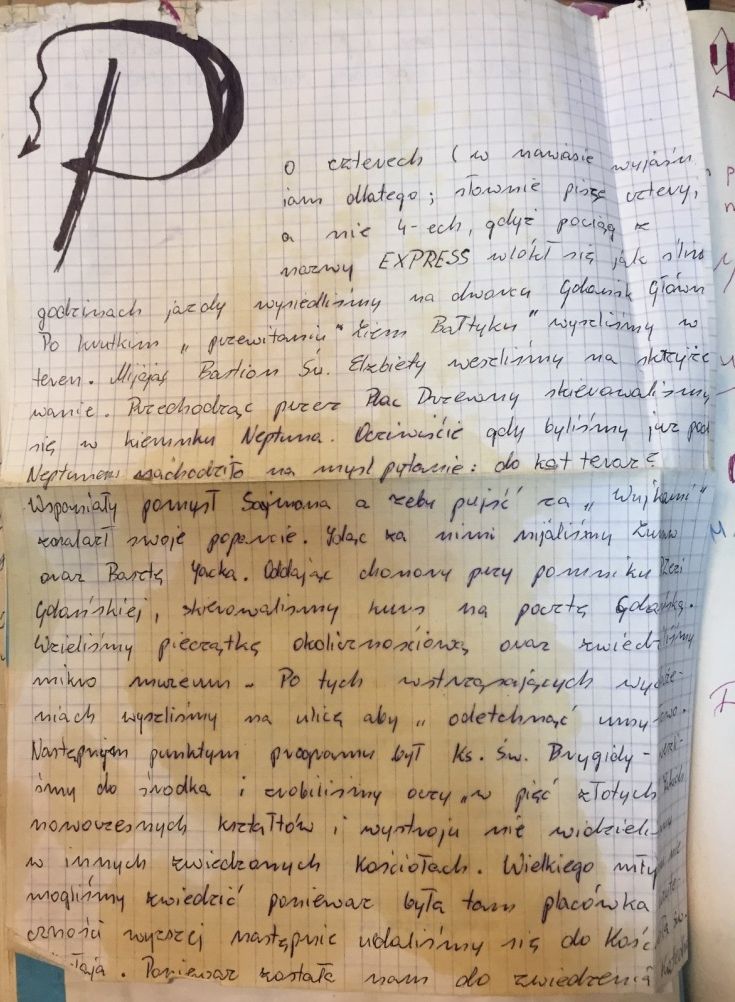 P
o czterech (w nawasie wyjaśn
iam dlatego; słownie piszę cztery,
a nie 4-ech, gdyż pociąg z
nazwy EXPRESS wlókł się jak
godzinach jazdy wysiedliśmy na dworcu Gdańsk Główn
Po krutkim „przewitaniu" Bałtyku" wyszliśmy w
teren. Mijając Bastion Św. Elżbiety weszliśmy na skrzyżo
wanie. Przechodząc przez Plac Drzewny skierowaliśmy
się w kierunku Neptuna. Ocziwiście gdy byliśmy już pod
Neptunem nachodziło na myśl pytanie: do kąt teraz?
Wsponiały pomysł Sajmona a żeby pujść za „Wujkami"
znalazł swoje poparcie. Idąc za nimi mijaliśmy Żuraw
oraz Basztę Jacka. Oddając chonory przy pomniku
Gdańskiej, skierowaliśmy kurs na pocztę Gdańską.
Wzieliśmy pieczątkę okolicznościową oraz zwiedziliśmy
mikro muzeum. Po tych wstrząsających wydarze-
niach wyszliśmy na ulicę aby „odetchnąć
Następnym punktym programu był Ks. Św. Brygidy -
śmy do środka i zrobiliśmy oczy „w pięć złotych
nowoczesnych kształtów i wystroju nie widzieliśmy
w innych zwiedzanych kościołach. Wielkiego młyna nie
mogliśmy zwiedzić poniewarz była tam placówka
czności wyższej następnie udaliśmy się do Kość
Poniewarz została nam do zwiedzenia